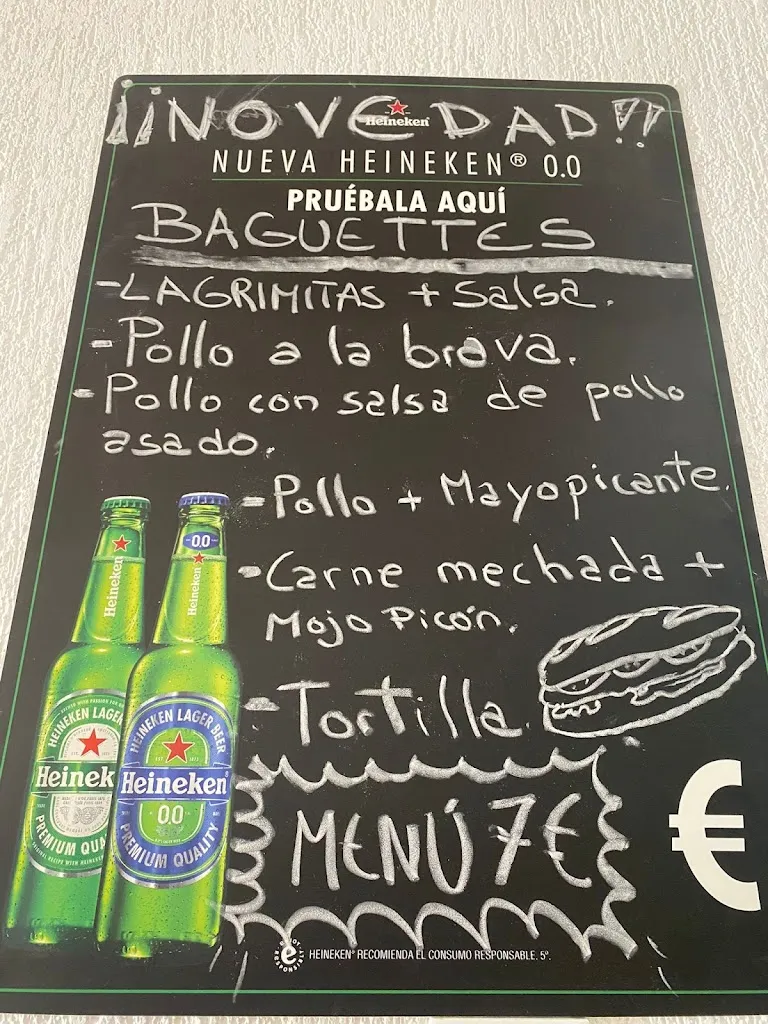 ¡¡NOVEDAD!!
Heineken
NUEVA HEINEKEN® 0.0
PRUÉBALA AQUÍ
BAGUETTES
-LAGRIMITAS + Salsa.
-Pollo a la brava.
-Pollo con salsa de pollo
asado.
-Pollo + Mayopicante.
-Carne mechada +
Mojo Picón.
-Tortilla.
MENÚ 7€
€
Heineken
0.0
Heineken
HEINEKEN LAGER
Heinek
PREMIUM QUA
HEINEKEN LAGER BEER
Heineken®
0.0
PREMIUM QUALITY
ENJOY RESPONSIBLY
HEINEKEN® RECOMIENDA EL CONSUMO RESPONSABLE. 5º.